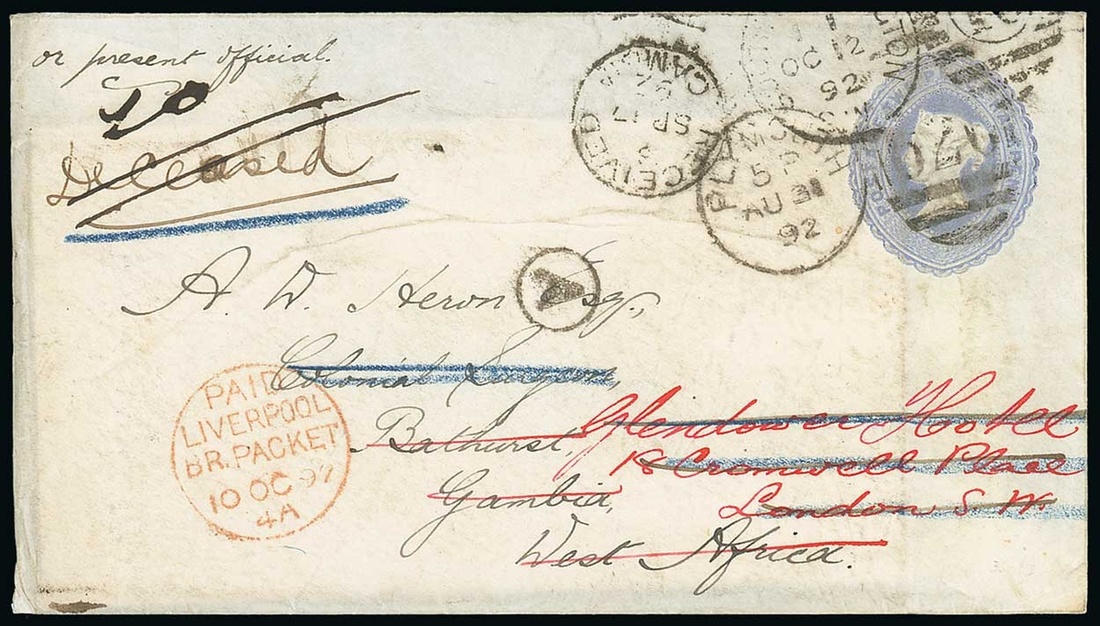 or present official.
Deceased
A. W. Heron Esq.,
Colonial Surgeon,
Bathurst,
Gambia,
West Africa.
Glendower Hotel
18 Cromwell Place
London S.W.
PAID
LIVERPOOL
BR. PACKET
10 OC 92
4A
RECEIVED
SP 17
92
PLYMOUTH
5
AU 31
92
OC 12
92
A